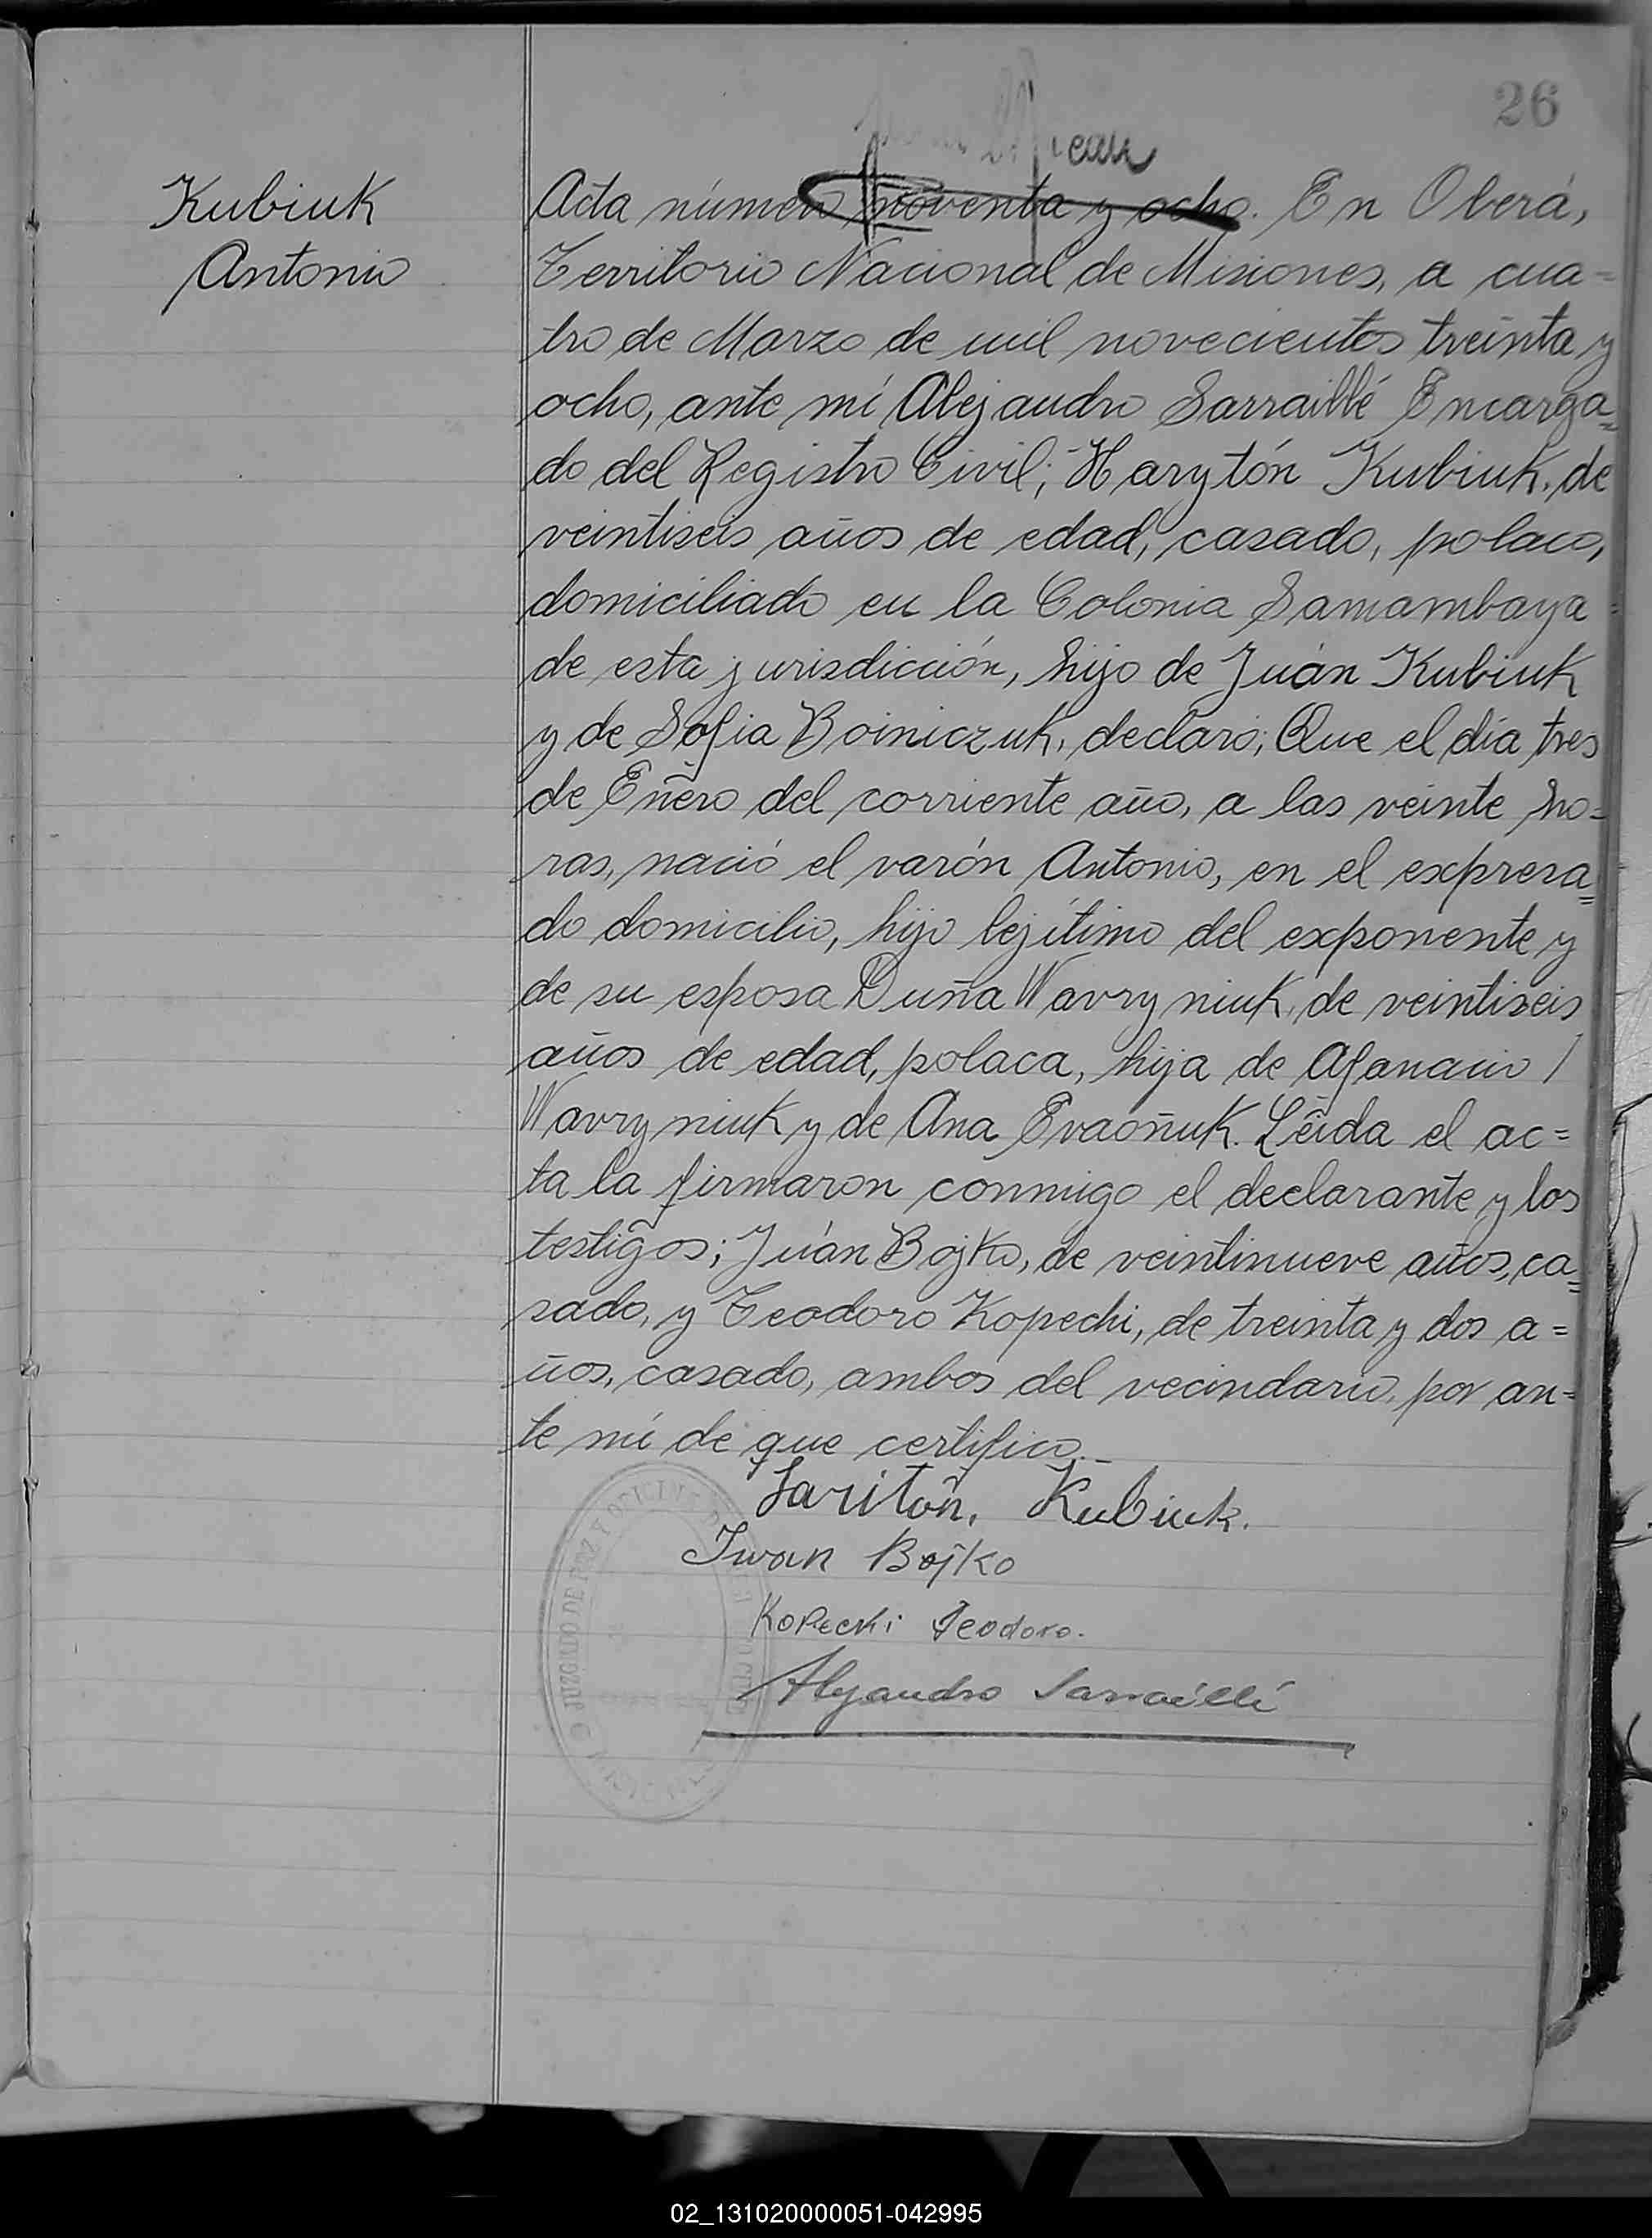 26
Kubiuk
Antonio
Acta número noventa y ocho. En Oberá,
Territorio Nacional de Misiones, a cua-
tro de Marzo de mil novecientos treinta y
ocho, ante mí Alejandro Sarraillé Encarga=
do del Registro Civil; Harytón Kubiuk, de
veintiseis años de edad, casado, polaco,
domiciliado en la Colonia Samambaya=
de esta jurisdicción, hijo de Juán Kubiuk
y de Sofia Boiniczuk, declaró; Que el día tres
de Enero del corriente año, a las veinte ho=
ras, nació el varón Antonio, en el expresa=
do domicilio, hijo lejítimo del exponente y
de su esposa Duña Wavryniuk, de veintiseis
años de edad, polaca, hija de Afanacio /
Wavryniuk y de Ana Evaoñuk. Leida el ac=
ta la firmaron conmigo el declarante y los
testigos; Juán Bojko, de veintinueve años, ca=
sado, y Teodoro Kopechi, de treinta y dos a=
ños, casado, ambos del vecindario, por an=
te mí de que certifico.-
Haritón, Kubiuk.
Iwan Bojko
Kopechi Teodoro.
Alejandro Sarraillé
JUZGADO DE PAZ Y OFICINA
02_131020000051-042995